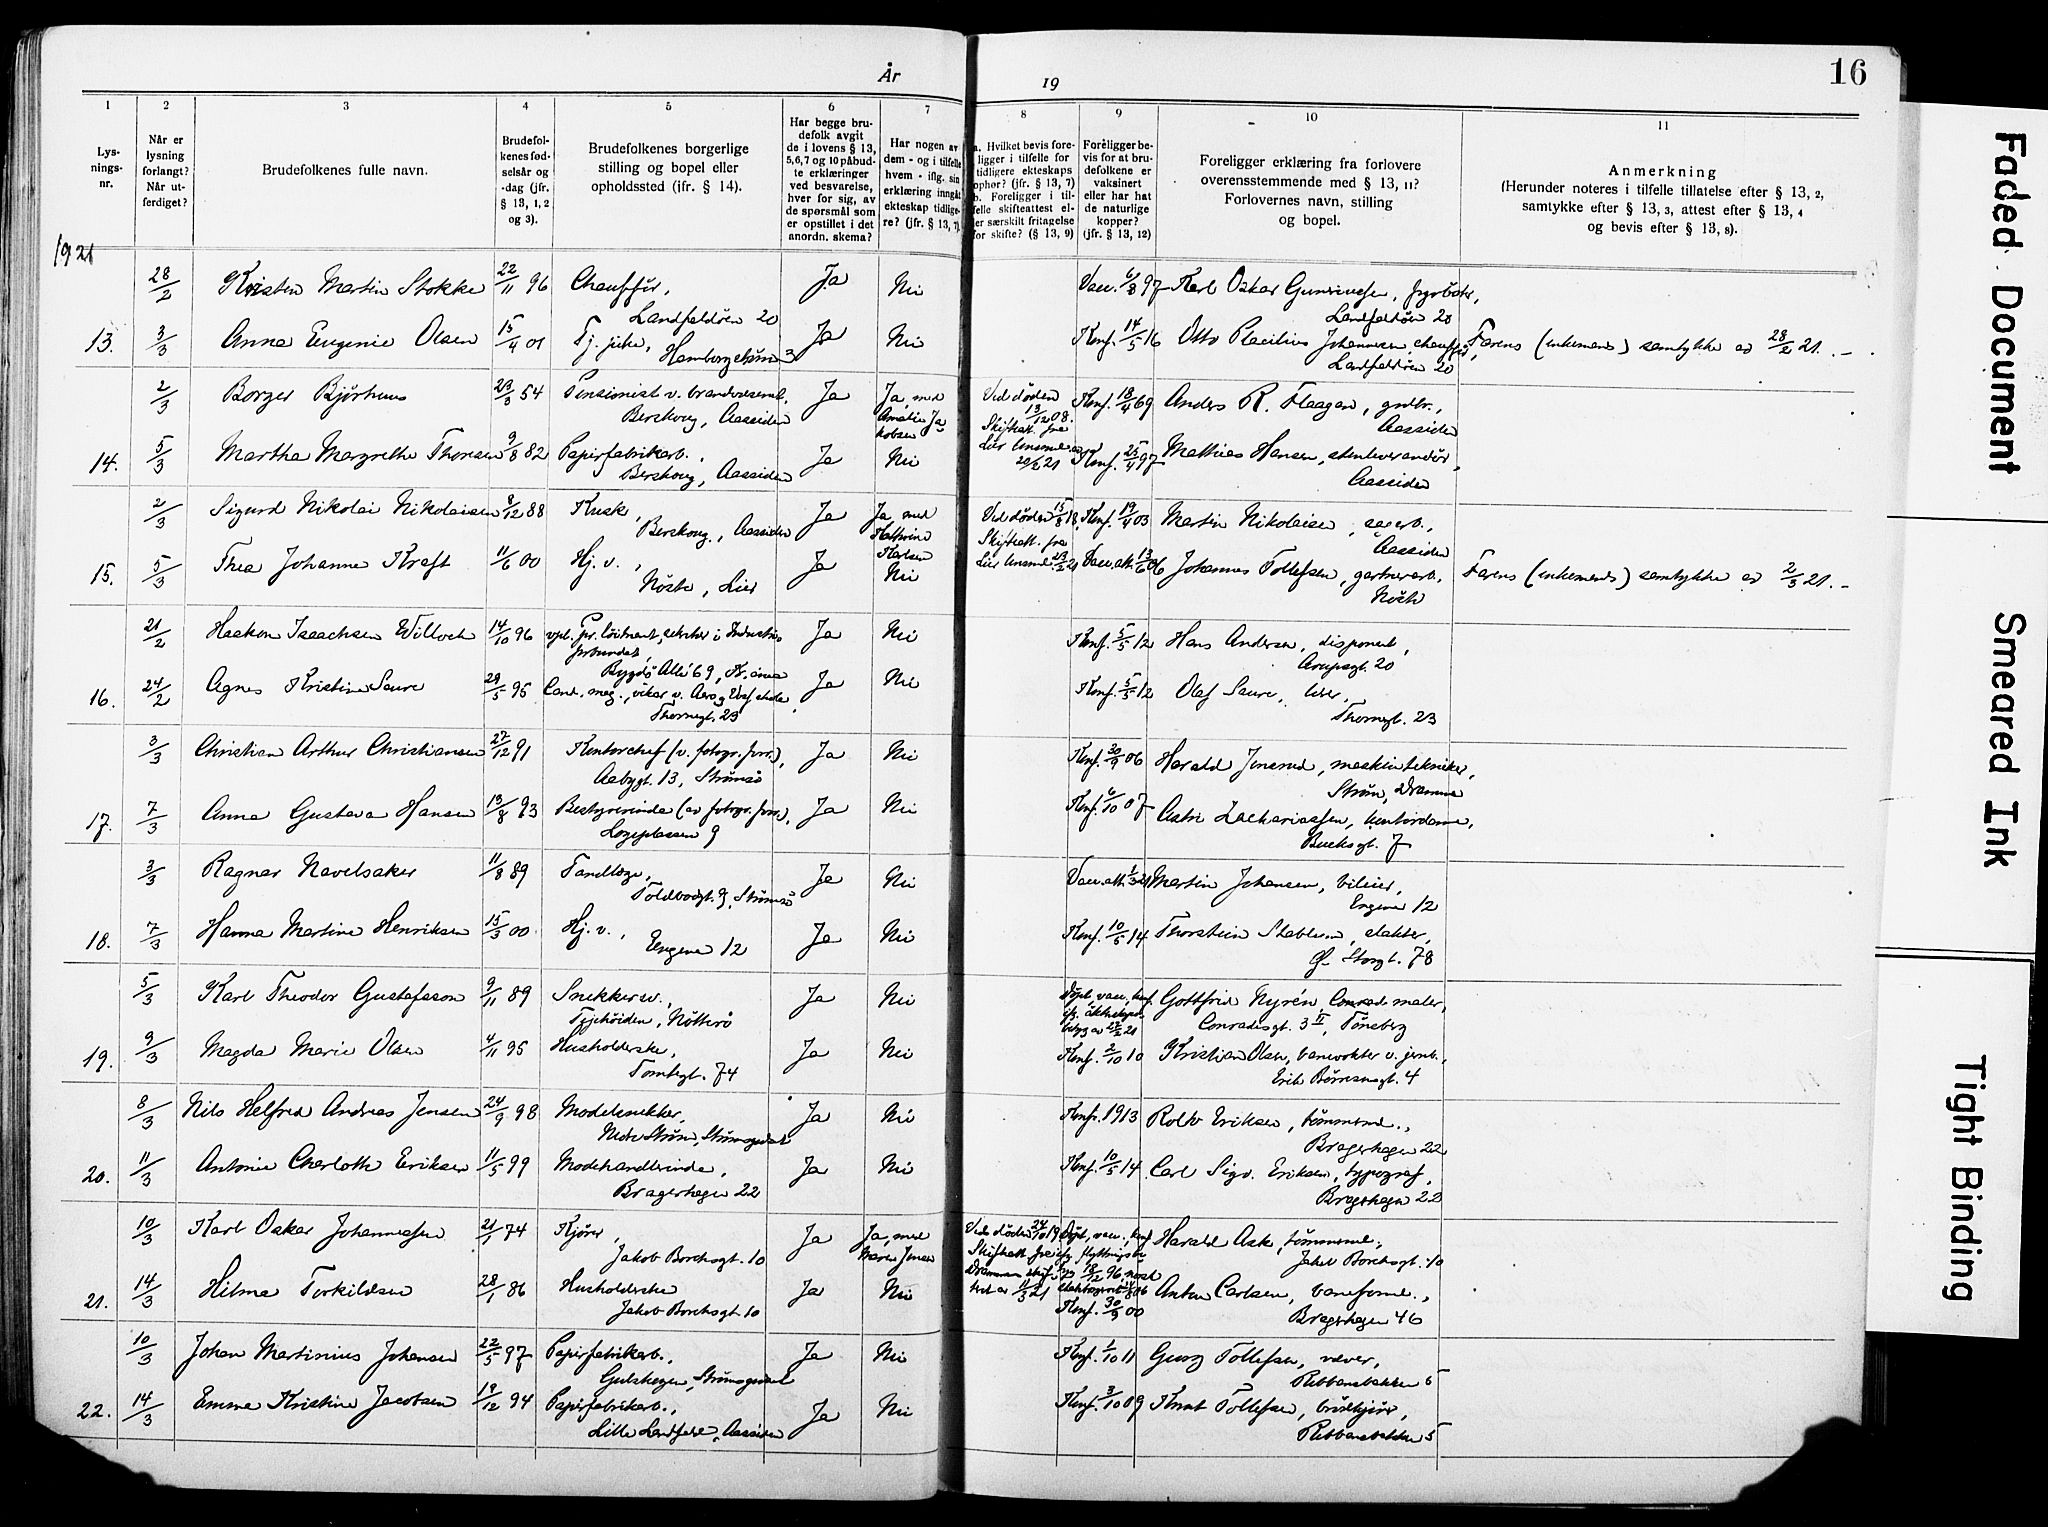 År
19
16
1 2 3 4 5 6 7 8 9 10 11
Lys-
nings-
nr.
Når er
lysning
forlangt?
Når ut-
ferdiget?
Brudefolkenes fulle navn.
Brudefol-
kenes fød-
selsår og
-dag (jfr.
§ 13, 1, 2
og 3).
Brudefolkenes borgerlige
stilling og bopel eller
opholdssted (jfr. § 14).
Har begge bru-
defolk avgit
de i lovens § 13,
5,6,7 og 10 påbud-
te erklæringer
ved besvarelse,
hver for sig, av
de spørsmål som
er opstillet i det
anordn. skema?
Har nogen av
dem - og i tilfelle
hvem - iflg. sin
erklæring inngåt
ekteskap tidlige-
re? (jfr. § 13, 7)
a. Hvilket bevis fore-
ligger i tilfelle for
tidligere ekteskaps
ophør? (jfr. § 13, 7)
b. Foreligger i til-
felle skifteattest el-
ler særskilt fritagelse
for skifte? (§ 13, 9)
Foreligger be-
vis for at bru-
defolkene er
vaksinert
eller har hat
de naturlige
kopper?
(jfr. § 13, 12)
Foreligger erklæring fra forlovere
overensstemmende med § 13, 11?
Forlovernes navn, stilling
og bopel.
Anmerkning
(Herunder noteres i tilfelle tillatelse efter § 13, 2,
samtykke efter § 13, 3, attest efter § 13, 4
og bevis efter § 13, 8).
1921
28/2 Kristen Martin Stokke 22/11 96 Chauffør, Ja Nei Vacc. 6/8 97 Karl Oskar Gunerius­sen,
Landfaldøen 20 Landfaldøen 20
13. 3/3 Anna Eugenie Olsen 15/4 01 Tj. pike, Ja Nei Konf. 14/5 16 Otto Johannesen, chauffør, Farens (enkemand) samtykke av 28/2 21. –
Landfaldøen 20
2/3 Borger Bjørhuus 23/3 54 Pensionist v. brandvesenet, Ja Ja, med Ved døden Konf. 18/4 69 Anders R. Flaagan, gmbr.,
Berskoug, Aassiden Amalie Ja- 13/12 08. Aassiden
kobsen Skifteatt. fra
14. 5/3 Martha Margrethe Thorsen 9/8 82 Papirfabrikarb., Ja Nei Konf. 25/4 97 Mathias Hansen, stenleverandør,
Berskoug, Aassiden Aassiden
2/3 Sigurd Nikolai Nikolaisen 8/12 88 Kusk, Ja Ja, med Ved døden 15/8 18, Konf. 19/4 03 Martin Nikolaisen, sagarb.,
Berskoug, Aassiden Kathrine Skifteatt. fra Aassiden
Karlsen
15. 5/3 Thea Johanne Kraft 11/6 00 Hj. v., Ja Nei Vacc. att. 13/6 06 Johannes Tollefsen, gartnerarb. Farens (enkemands) samtykke av 2/3 21. –
Nøste, Lier Nøste
21/2 Haakon Isaachsen Willoch 14/10 96 vpl. pr. løitnant, sekretær i Industri- Ja Nei Konf. 5/5 12 Hans Andersen, disponent,
forbundet,
Bygdø Allé 69, Kr.ania
16. 24/2 Agnes Kristine Saure 29/5 95 Cand. mag., vikar v. skole, Ja Nei Konf. 5/5 12 Olaf Saure, lærer,
Thornegt. 23 Thornegt. 23
3/3 Christian Arthur Christiansen 27/12 91 Kontorchef (v. fotogr. forr.), Ja Nei Konf. 30/9 06 Harald Jensrud, maskintekniker,
Aabygt. 13, Strømsø Strøm, Drammen
17. 7/3 Anna Gustava Hansen 13/8 93 Bestyrerinde (av fotogr. forr.), Ja Nei Konf. 6/10 07 Astri Zachariassen, kontordame,
Logeplassen 9 Bucksgt. 7
3/3 Ragnar Navelsaker 11/8 89 Tandlæge, Ja Nei Vacc. att. 1/3 21 Martin Johansen, bileier,
Toldbodgt. 9, Strømsø Engene 12
18. 7/3 Hanna Martine Henriksen 15/3 00 Hj. v., Ja Nei Konf. 10/5 14 Thorstein Stablum, slakter,
Engene 12 Ø. Storgt. 78
5/3 Karl Theodor Gustafsson 9/11 89 Snekkersv., Ja Nei Gottfrid Nyrén, maler,
Nøtterø Conradisgt. 3 II, Tønsberg
19. 9/3 Magda Marie Olsen 4/11 95 Husholderske, Ja Nei Konf. 2/10 10 Kristian Olsen, banevokter v. jernb.,
Tomtegt. 74 Erik Børresensgt. 4
8/3 Nils Helfred Andreas Jensen 24/9 98 Modelsnekker, Ja Nei Konf. 1913 Rolv Eriksen, tømmermd.,
Nedre Strøm, Strømsgodset Bragerhagen 22
20. 11/3 Antonie Charlotte Eriksen 11/5 99 Modehandlerinde, Ja Nei Konf. 10/5 14 Carl Sigv. Eriksen, typograf,
Bragerhagen 22 Bragerhagen 22
10/3 Karl Oskar Johannessen 21/1 74 Kjører, Ja Ja, med Ved døden 24/10 19 Døpt, vacc., konf. Harald Ask, tømmermd.,
Jakob Borchsgt. 10 Maren Jensen Skifteatt. fra Jakob Borchsgt. 10
21. 14/3 Hilma Torkildsen 28/1 86 Husholderske Ja Nei Konf. 30/9 00 Anton Carlsen, baneform.,
Jakob Borchsgt. 10 Bragerhagen 46
10/3 Johan Martinius Johansen 22/5 97 Papirfabrikarb., Ja Nei Konf. 1/10 11 Gusz Tollefsen, væver,
Gulskogen, Strømsgodset Ribbansbakken 5
22. 14/3 Emma Kristine Jacobsen 19/12 94 Papirfabrikarb., Ja Nei Konf. 3/10 09 Knut Tollefsen, brødkjører,
Lille Landfald, Aassiden Ribbansbakken 5
Faded Document
Smeared Ink
Tight Binding